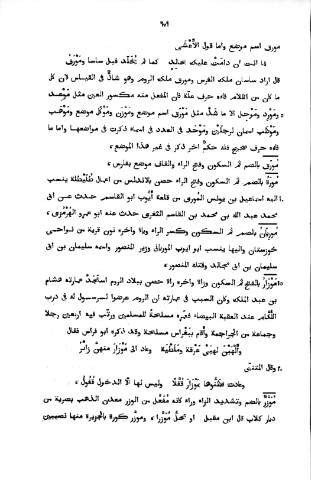 ٦٧٩
مورق اسم موضع واما قول الأَعْشَى
فما انت ان دامَتْ عليك بخالِدٍ كما لم يُخَلَّد قبل ساسا ومَوْرَق
قال اراد ساسان ملك الفرس ومورق ملك الروم وهو شاذٌّ فى القياس لان كل
ما كان من الكلام فاءه حرف علّة فانّ المفعل منه مكسور العين مثل مَوْعِد
ومَوْرِد ومَوْحِل الا ما شذّ مثل مَوْرَق اسم موضع ومَوْزَن ومَوْكَل موضع ومَوْهَب
ومَوْظَب اسمان لرجلَيْن ومَوْحَد فى العدد فى اسماء ذكرت فى مواضعها واما ما
فاءه حرف صحيح فله حكمٌ اخر ذكر فى غير هذا الموضع،
مُورَق بالضم ثم السكون وفتح الراء والقاف موضع بفارس،
مُورَة بالضم ثم السكون وفتح الراء حصن بالاندلس من اعمال طُلَيْطلة ينسب
اليه اسماعيل بن يونس المُورى من قلعة أيوب ابو القاسم حدث عن ابى
محمد عبد الله بن محمد بن القاسم الثغرى حدث عنه ابو عمرو الهُرْمُزى،
مُورِيَان بالضم ثم السكون وكسر الراء وياء واخره نون قرية من نواحى
خوزستان واليها ينسب ابو ايوب المورياني وزير المنصور واسمه سليمان بن ابى
سليمان بن ابى مجالد وقتله المنصور،
مَوْزَار بالفتح ثم السكون وزاء واخره راء حصن ببلاد الروم استجدّ عمارته هشام
بن عبد الملك وكان السبب فى عمارته ان الروم عرضوا لسرسول له فى درب
اللُّكام عند العقبة البيضاء فعمره مسلحة للمسلمين ورتّب فيه اربعين رجلا
وجماعة من الجراجمة وأقام ببَغْراس مسلحة وقد ذكره ابو فراس فقال
وأَلْهَبْنَ لهبَىْ عَرْقَة ومَلَطْيَة وعاد الى مَوْزَار منهنّ زائر
وقال المتنبّى
وعادت فظنّوها بمَوْزَار قُفَّلا وليس لها الا الدخول قُفُول،
مُوَزَّر بالضم وتشديد الزاء وراء كانه مُفَعَّل من الوزر معدن الذهب بضرية من
ديار كلاب قال ابن مقبل او تحلّ مُوَزَّرا، ومَوْزَر كورة بالجزيرة منها نصيبين